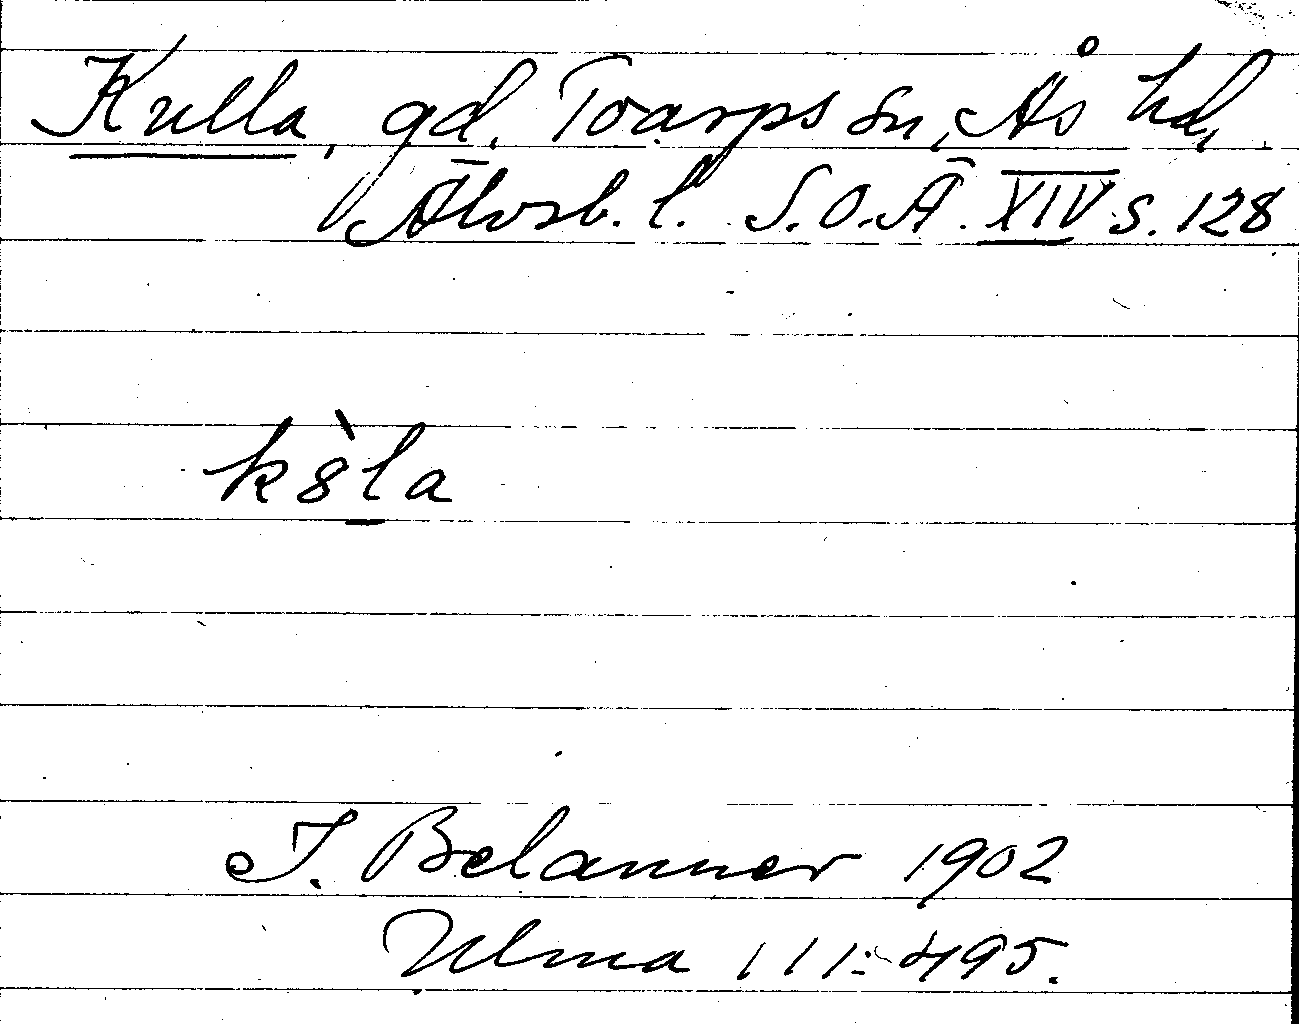 Kulla, gd. Toarps sn, Ås hd,
Älvsb. l. S.O.Ä. XIV s. 128
kòla
J. Belanner 1902
Ulma 111:495.